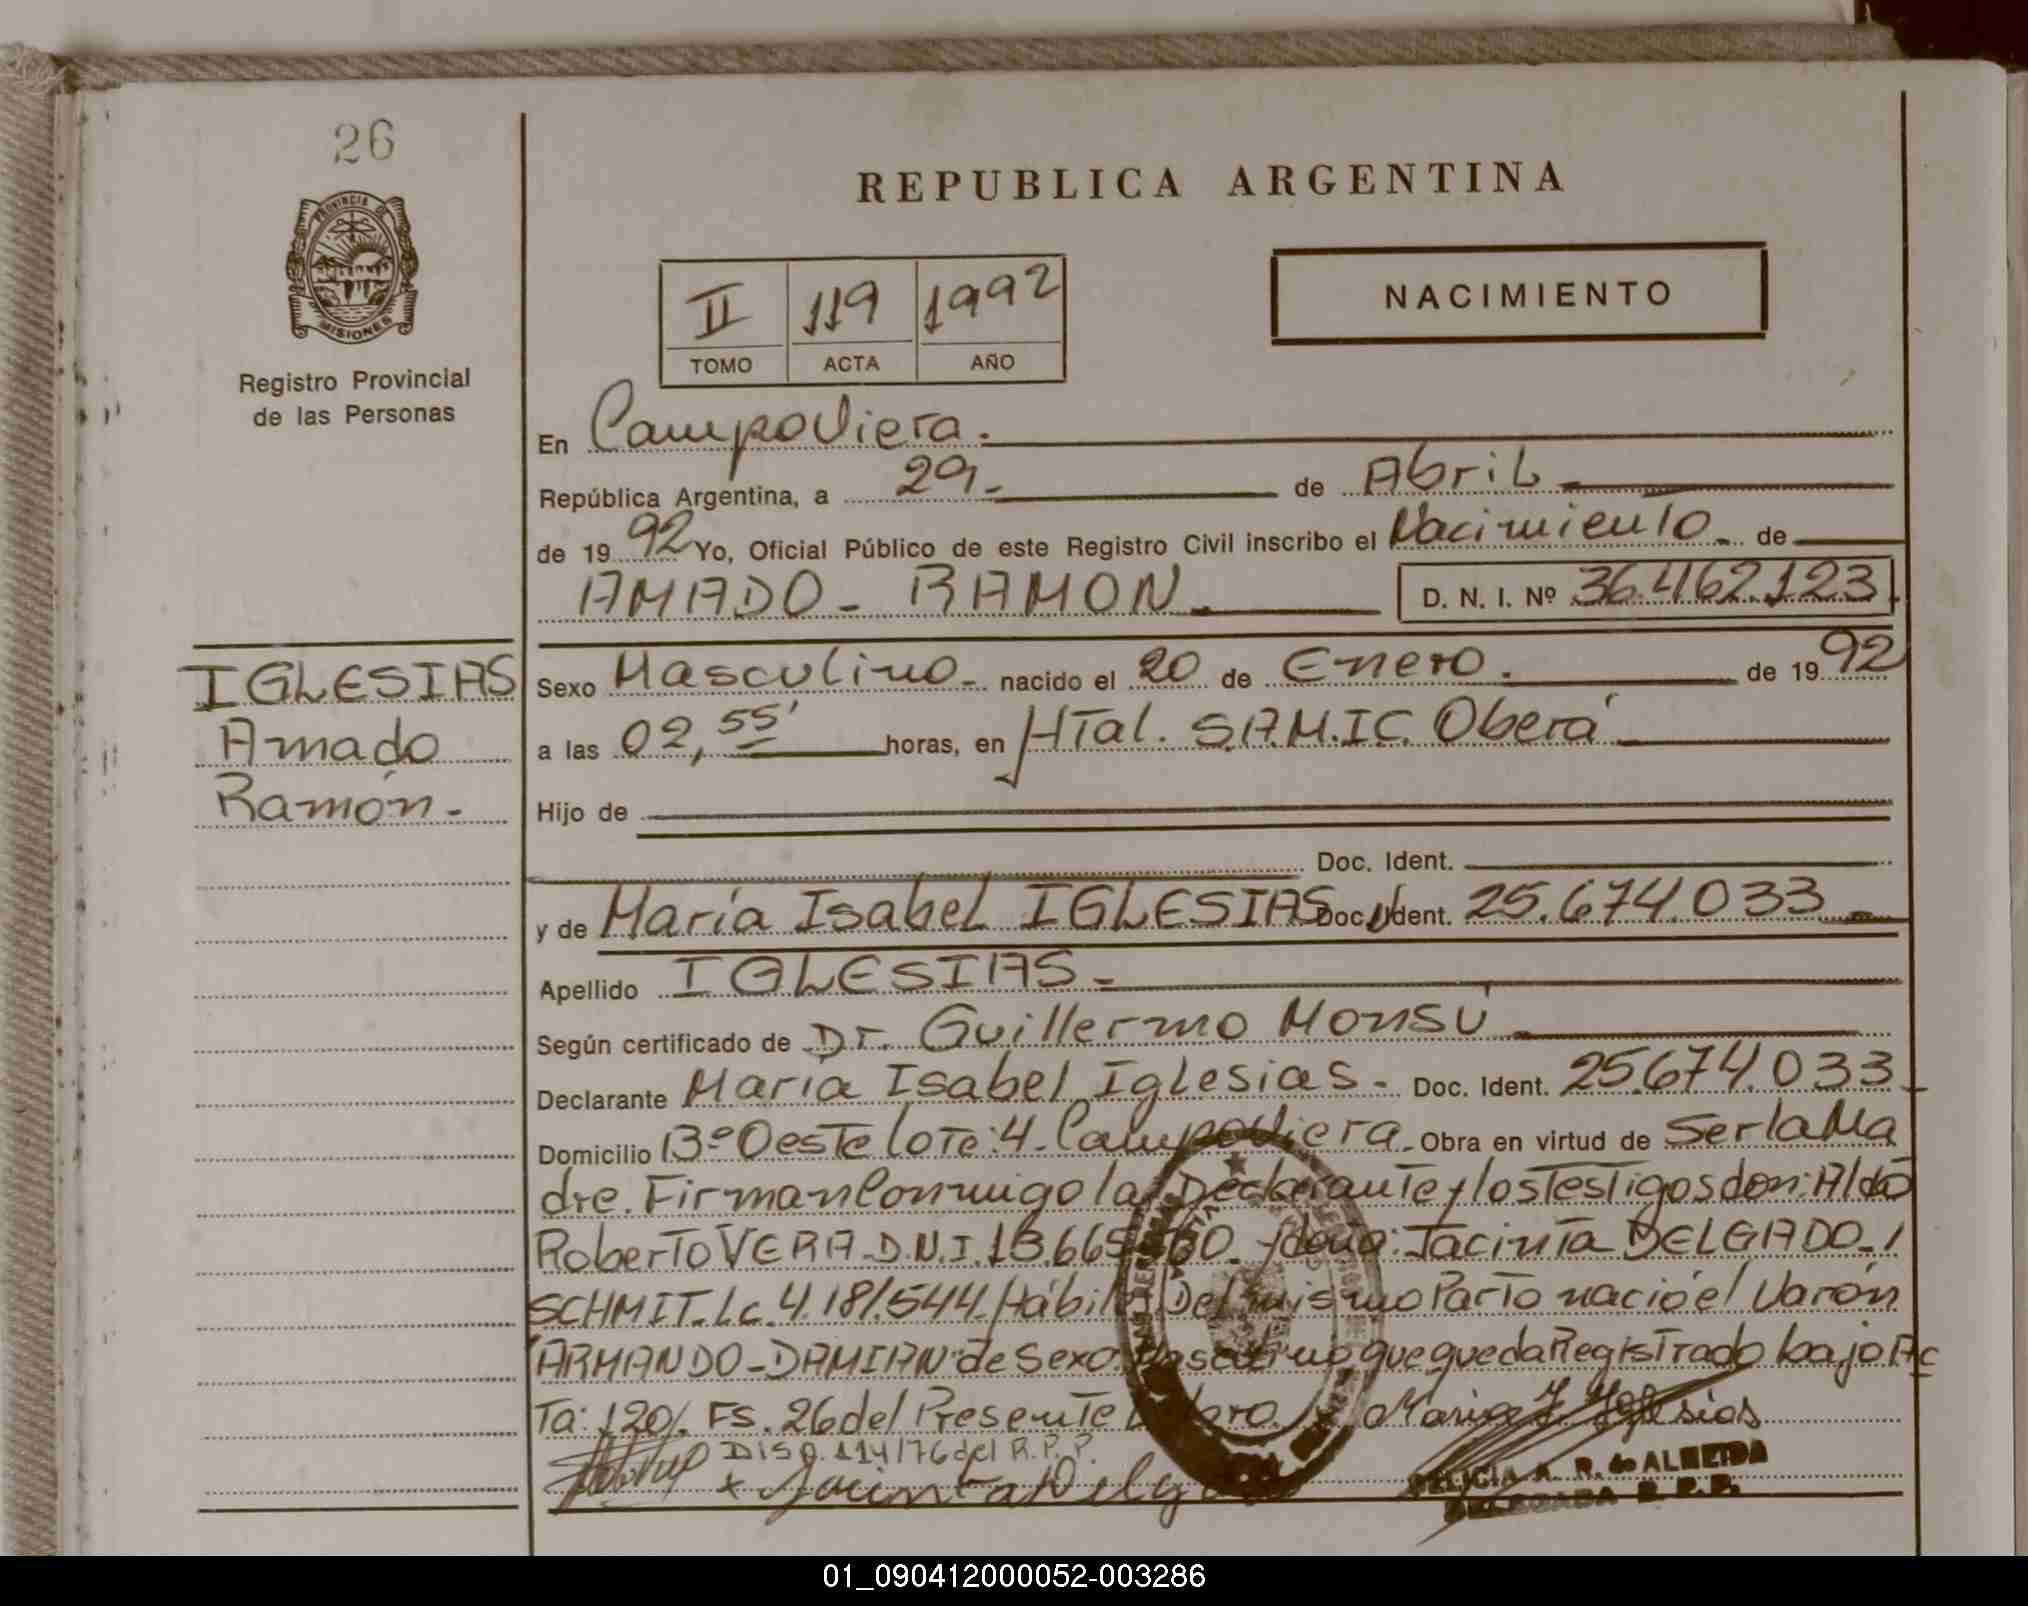 26
PROVINCIA DE
MISIONES
Registro Provincial
de las Personas
REPUBLICA ARGENTINA
II 119 1992
TOMO ACTA AÑO
NACIMIENTO
En CampoViera.
República Argentina, a 29 de Abril
de 19 92 Yo, Oficial Público de este Registro Civil inscribo el Nacimiento de
AMADO - RAMON D. N. I. Nº 36.462.123
IGLESIAS
Amado
Ramón.-
Sexo Masculino nacido el 20 de Enero. de 19 92
a las 02,55' horas, en Htal. S.A.M.I.C. Oberá
Hijo de
Doc. Ident.
y de María Isabel IGLESIAS Doc. Ident. 25.674.033
Apellido IGLESIAS-
Según certificado de Dr. Guillermo Monsú
Declarante María Isabel Iglesias- Doc. Ident. 25.674.033
Domicilio B° Oeste lote:4. CampoViera. Obra en virtud de Ser la Ma
dre. Firman Conmigo la Declarante y los Testigos don: Aldo
Roberto VERA-D.N.I. 13.665 60 y doña: Jacinta DELGADO-
SCHMIT-Lc. 4.181.544. Hábiles Del mismo Parto nació el Varón
ARMANDO-DAMIAN" de Sexo Masculino que queda Registrado bajo Ac
Ta: 120/. Fs. 26 del Presente Libro. Maria I. Iglesias
Disp. 114/76 del R.P.P.
x Jacinta Delg
FELICIA A. R. de ALMEIDA
DELEGADA R. P. P.
01_090412000052-003286